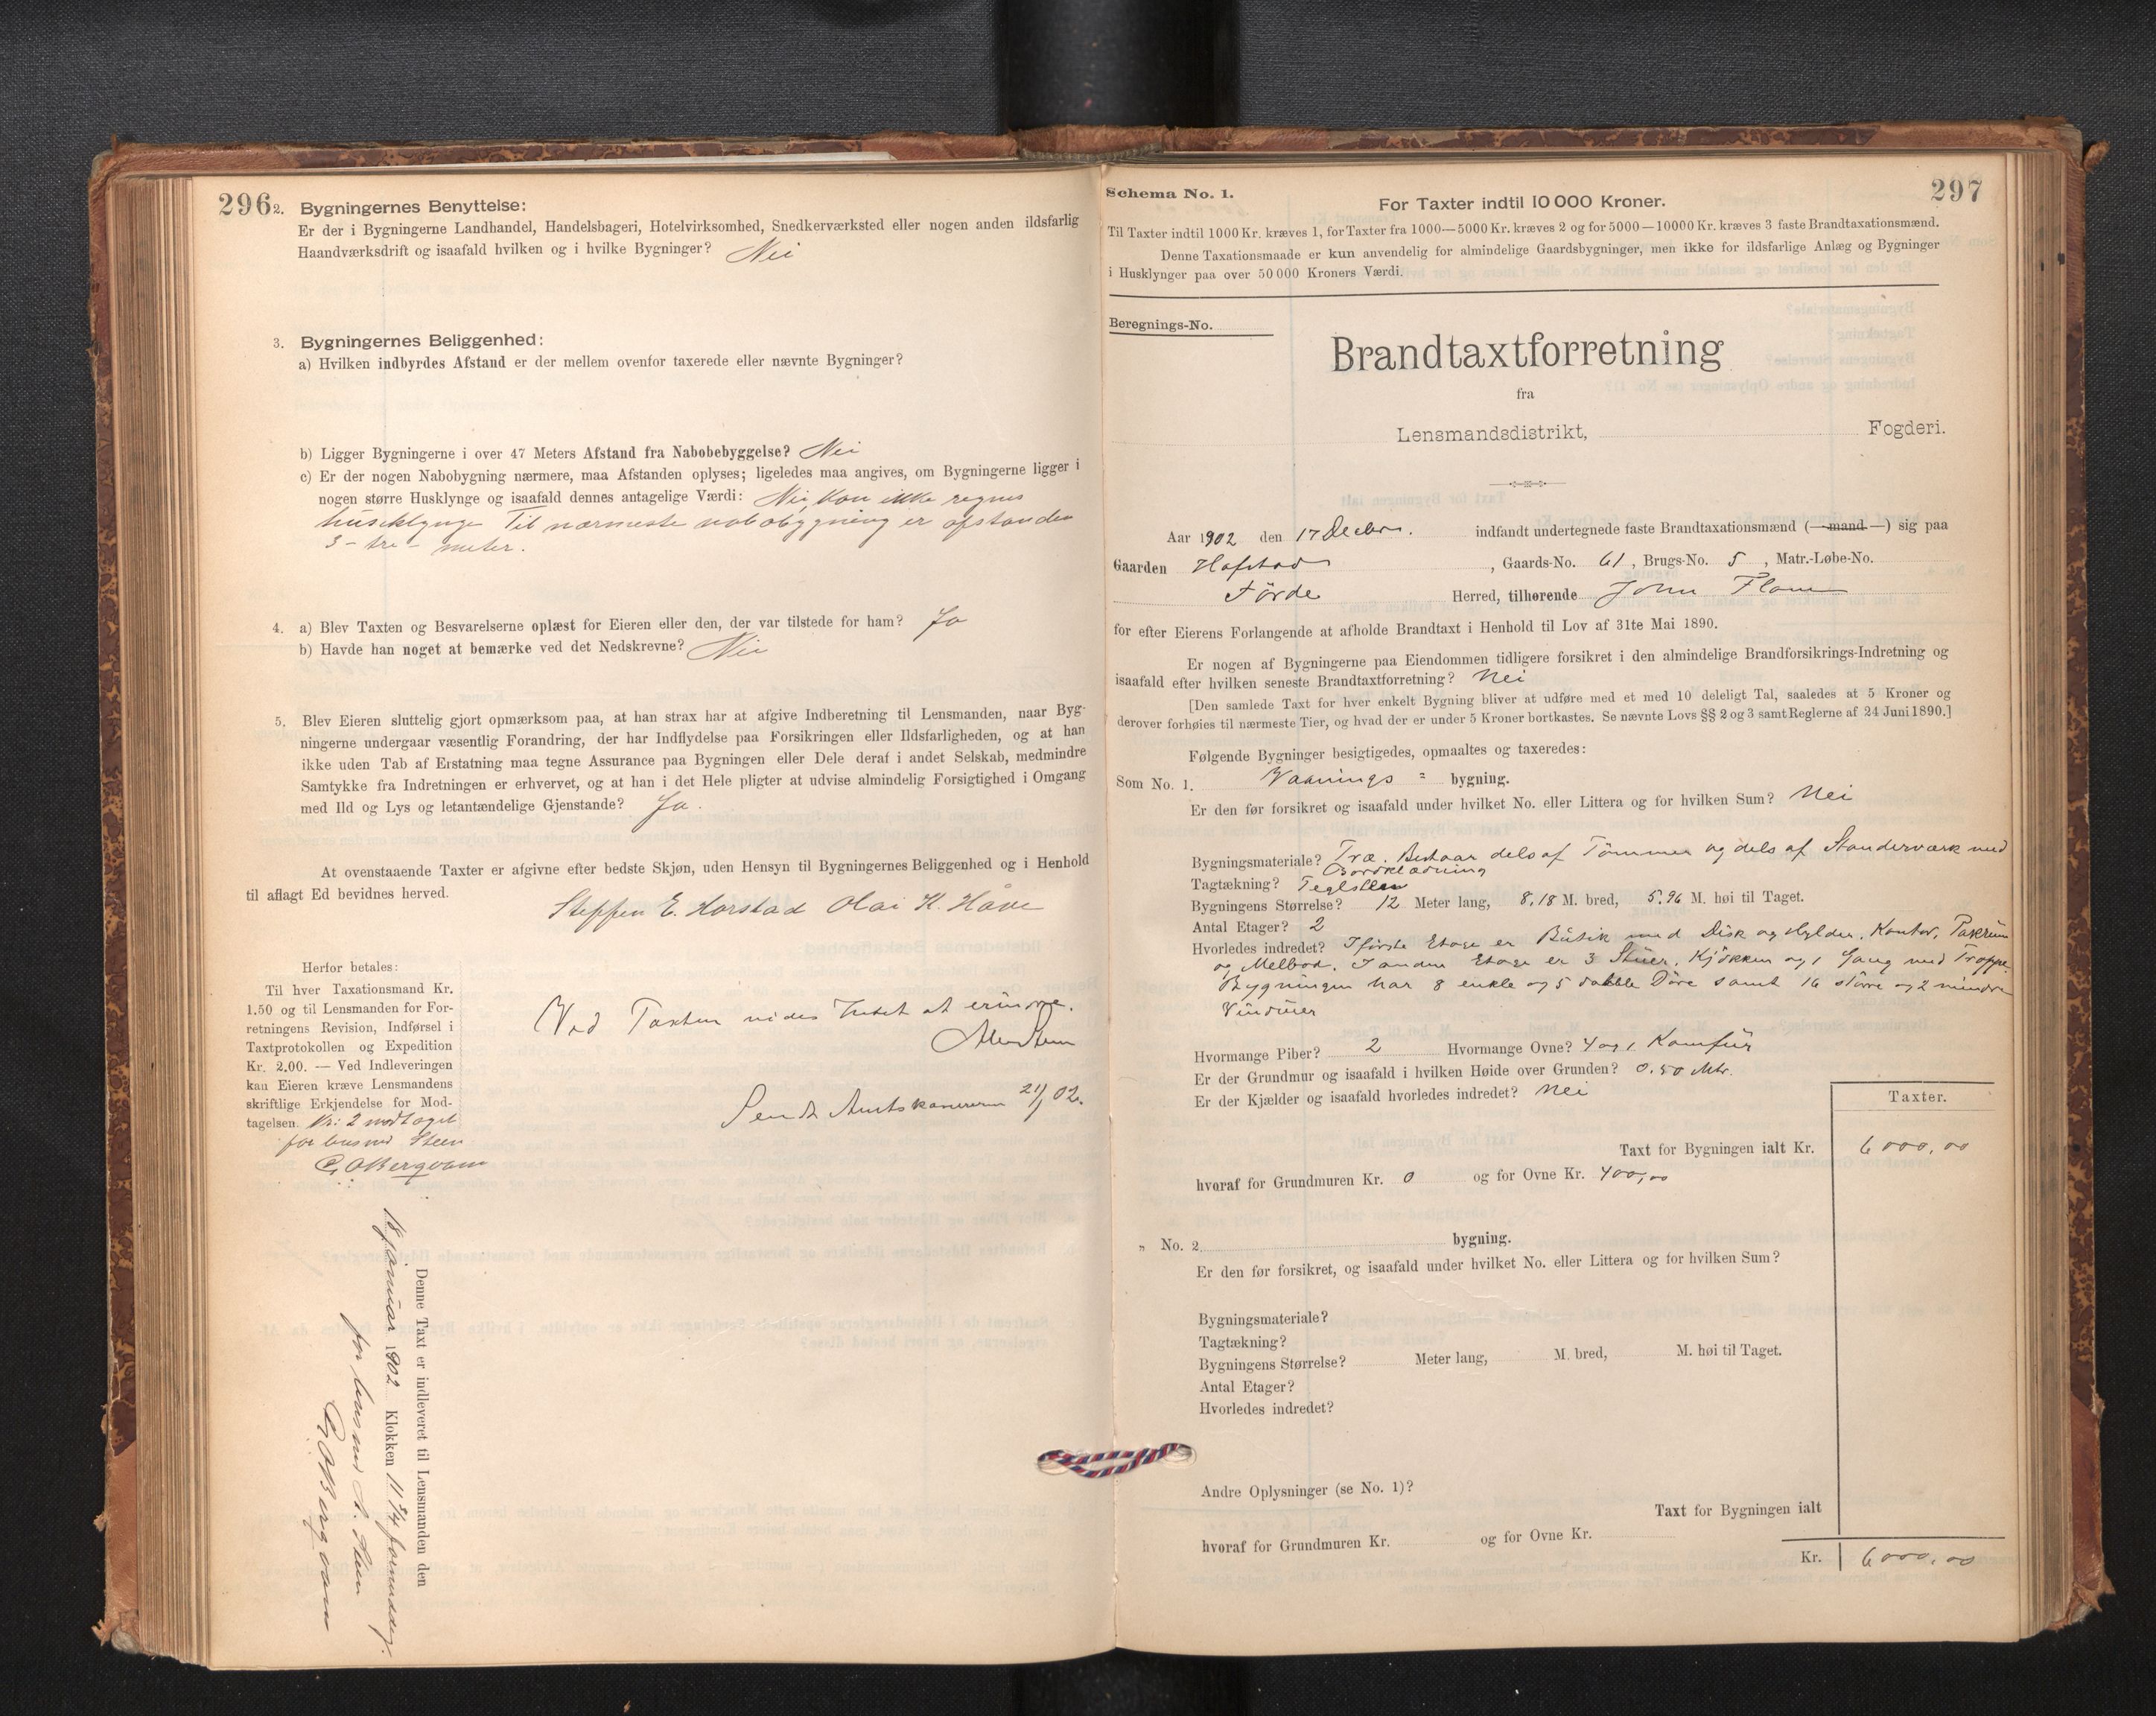 296
2. Bygningernes Benyttelse:
Er der i Bygningerne Landhandel, Handelsbageri, Hotelvirksomhed, Snedkerværksted eller nogen anden ildsfarlig
Haandværksdrift og isaafald hvilken og i hvilke Bygninger? Nei
3. Bygningernes Beliggenhed:
a) Hvilken indbyrdes Afstand er der mellem ovenfor taxerede eller nævnte Bygninger?
b) Ligger Bygningerne i over 47 Meters Afstand fra Nabobebyggelse? Nei
c) Er der nogen Nabobygning nærmere, maa Afstanden oplyses; ligeledes maa angives, om Bygningerne ligger i
nogen større Husklynge og isaafald dennes antagelige Værdi: Nei, kan ikke regnes
husklynge Til nærmeste nabobygning er afstanden
3 - tre - meter.
4. a) Blev Taxten og Besvarelserne oplæst for Eieren eller den, der var tilstede for ham? Ja
b) Havde han noget at bemærke ved det Nedskrevne? Nei
5. Blev Eieren sluttelig gjort opmærksom paa, at han strax har at afgive Indberetning til Lensmanden, naar Byg-
ningerne undergaar væsentlig Forandring, der har Indflydelse paa Forsikringen eller Ildsfarligheden, og at han
ikke uden Tab af Erstatning maa tegne Assurance paa Bygningen eller Dele deraf i andet Selskab, medmindre
Samtykke fra Indretningen er erhvervet, og at han i det Hele pligter at udvise almindelig Forsigtighed i Omgang
med Ild og Lys og letantændelige Gjenstande? Ja.
At ovenstaaende Taxter er afgivne efter bedste Skjøn, uden Hensyn til Bygningernes Beliggenhed og i Henhold
til aflagt Ed bevidnes herved.
Steffen E. Horstad Olai H. Håve
Herfor betales:
Til hver Taxationsmand Kr.
1.50 og til Lensmanden for For-
retningens Revision, Indførsel i
Taxtprotokollen og Expedition
Kr. 2.00. — Ved Indleveringen
kan Eieren kræve Lensmandens
skriftlige Erkjendelse for Mod-
tagelsen. Kr: 2 modtaget
for lensmd Steen
G. O Bergvam
Ved Taxten vides Intet at erindre.
Sendt Amtskassereren 21/1 02.
Denne Taxt er indleveret til Lensmanden den
18 januar 1902 Klokken 11 3/4 formiddag.
for lensmd A. Steen
G. O Bergvam
Schema No. 1.
297
For Taxter indtil 10 000 Kroner.
Til Taxter indtil 1000 Kr. kræves 1, for Taxter fra 1000—5000 Kr. kræves 2 og for 5000—10000 Kr. kræves 3 faste Brandtaxationsmænd.
Denne Taxationsmaade er kun anvendelig for almindelige Gaardsbygninger, men ikke for ildsfarlige Anlæg og Bygninger
i Husklynger paa over 50 000 Kroners Værdi.
Beregnings-No.
Brandtaxtforretning
fra
Lensmandsdistrikt, Fogderi.
Aar 1902 den 17 Decbr. indfandt undertegnede faste Brandtaxationsmænd (—mand—) sig paa
Gaarden Hafstad, Gaards-No. 61, Brugs-No. 5, Matr.-Løbe-No.
Førde Herred, tilhørende John Flam
for efter Eierens Forlangende at afholde Brandtaxt i Henhold til Lov af 31te Mai 1890.
Er nogen af Bygningerne paa Eiendommen tidligere forsikret i den almindelige Brandforsikrings-Indretning og
isaafald efter hvilken seneste Brandtaxtforretning? Nei
[Den samlede Taxt for hver enkelt Bygning bliver at udføre med et med 10 deleligt Tal, saaledes at 5 Kroner og
derover forhøies til nærmeste Tier, og hvad der er under 5 Kroner bortkastes. Se nævnte Lovs §§ 2 og 3 samt Reglerne af 24 Juni 1890.]
Følgende Bygninger besigtigedes, opmaaltes og taxeredes:
Som No. 1. Vaanings = bygning.
Er den før forsikret og isaafald under hvilket No. eller Littera og for hvilken Sum? Nei
Bygningsmateriale? Træ. Bestaar dels af Tømmer og dels af Standerværk med
Bordklædning
Tagtækning? Teglsten
Bygningens Størrelse? 12 Meter lang, 8.18 M. bred, 5.96 M. høi til Taget.
Antal Etager? 2
Hvorledes indredet? I første Etage er Butik med Disk og Hylder, Kontor, Pakrum
og Melbod. I anden Etage er 3 Stuer, Kjøkken og 1 Gang med Trappe.
Bygningen har 8 enkle og 5 dobble Døre samt 16 større og 2 mindre
Vinduer
Hvormange Piber? 2 Hvormange Ovne? 4 og 1 Komfur
Er der Grundmur og isaafald i hvilken Høide over Grunden? 0.50 Mtr.
Er der Kjælder og isaafald hvorledes indredet? Nei
Taxter.
Taxt for Bygningen ialt Kr. 6000,00
hvoraf for Grundmuren Kr. 0 og for Ovne Kr. 400,00
„ No. 2. bygning.
Er den før forsikret, og isaafald under hvilket No. eller Littera og for hvilken Sum?
Bygningsmateriale?
Tagtækning?
Bygningens Størrelse? Meter lang, M. bred, M. høi til Taget.
Antal Etager?
Hvorledes indredet?
Andre Oplysninger (se No. 1)?
Taxt for Bygningen ialt
hvoraf for Grundmuren Kr. og for Ovne Kr.
Kr. 6000,00